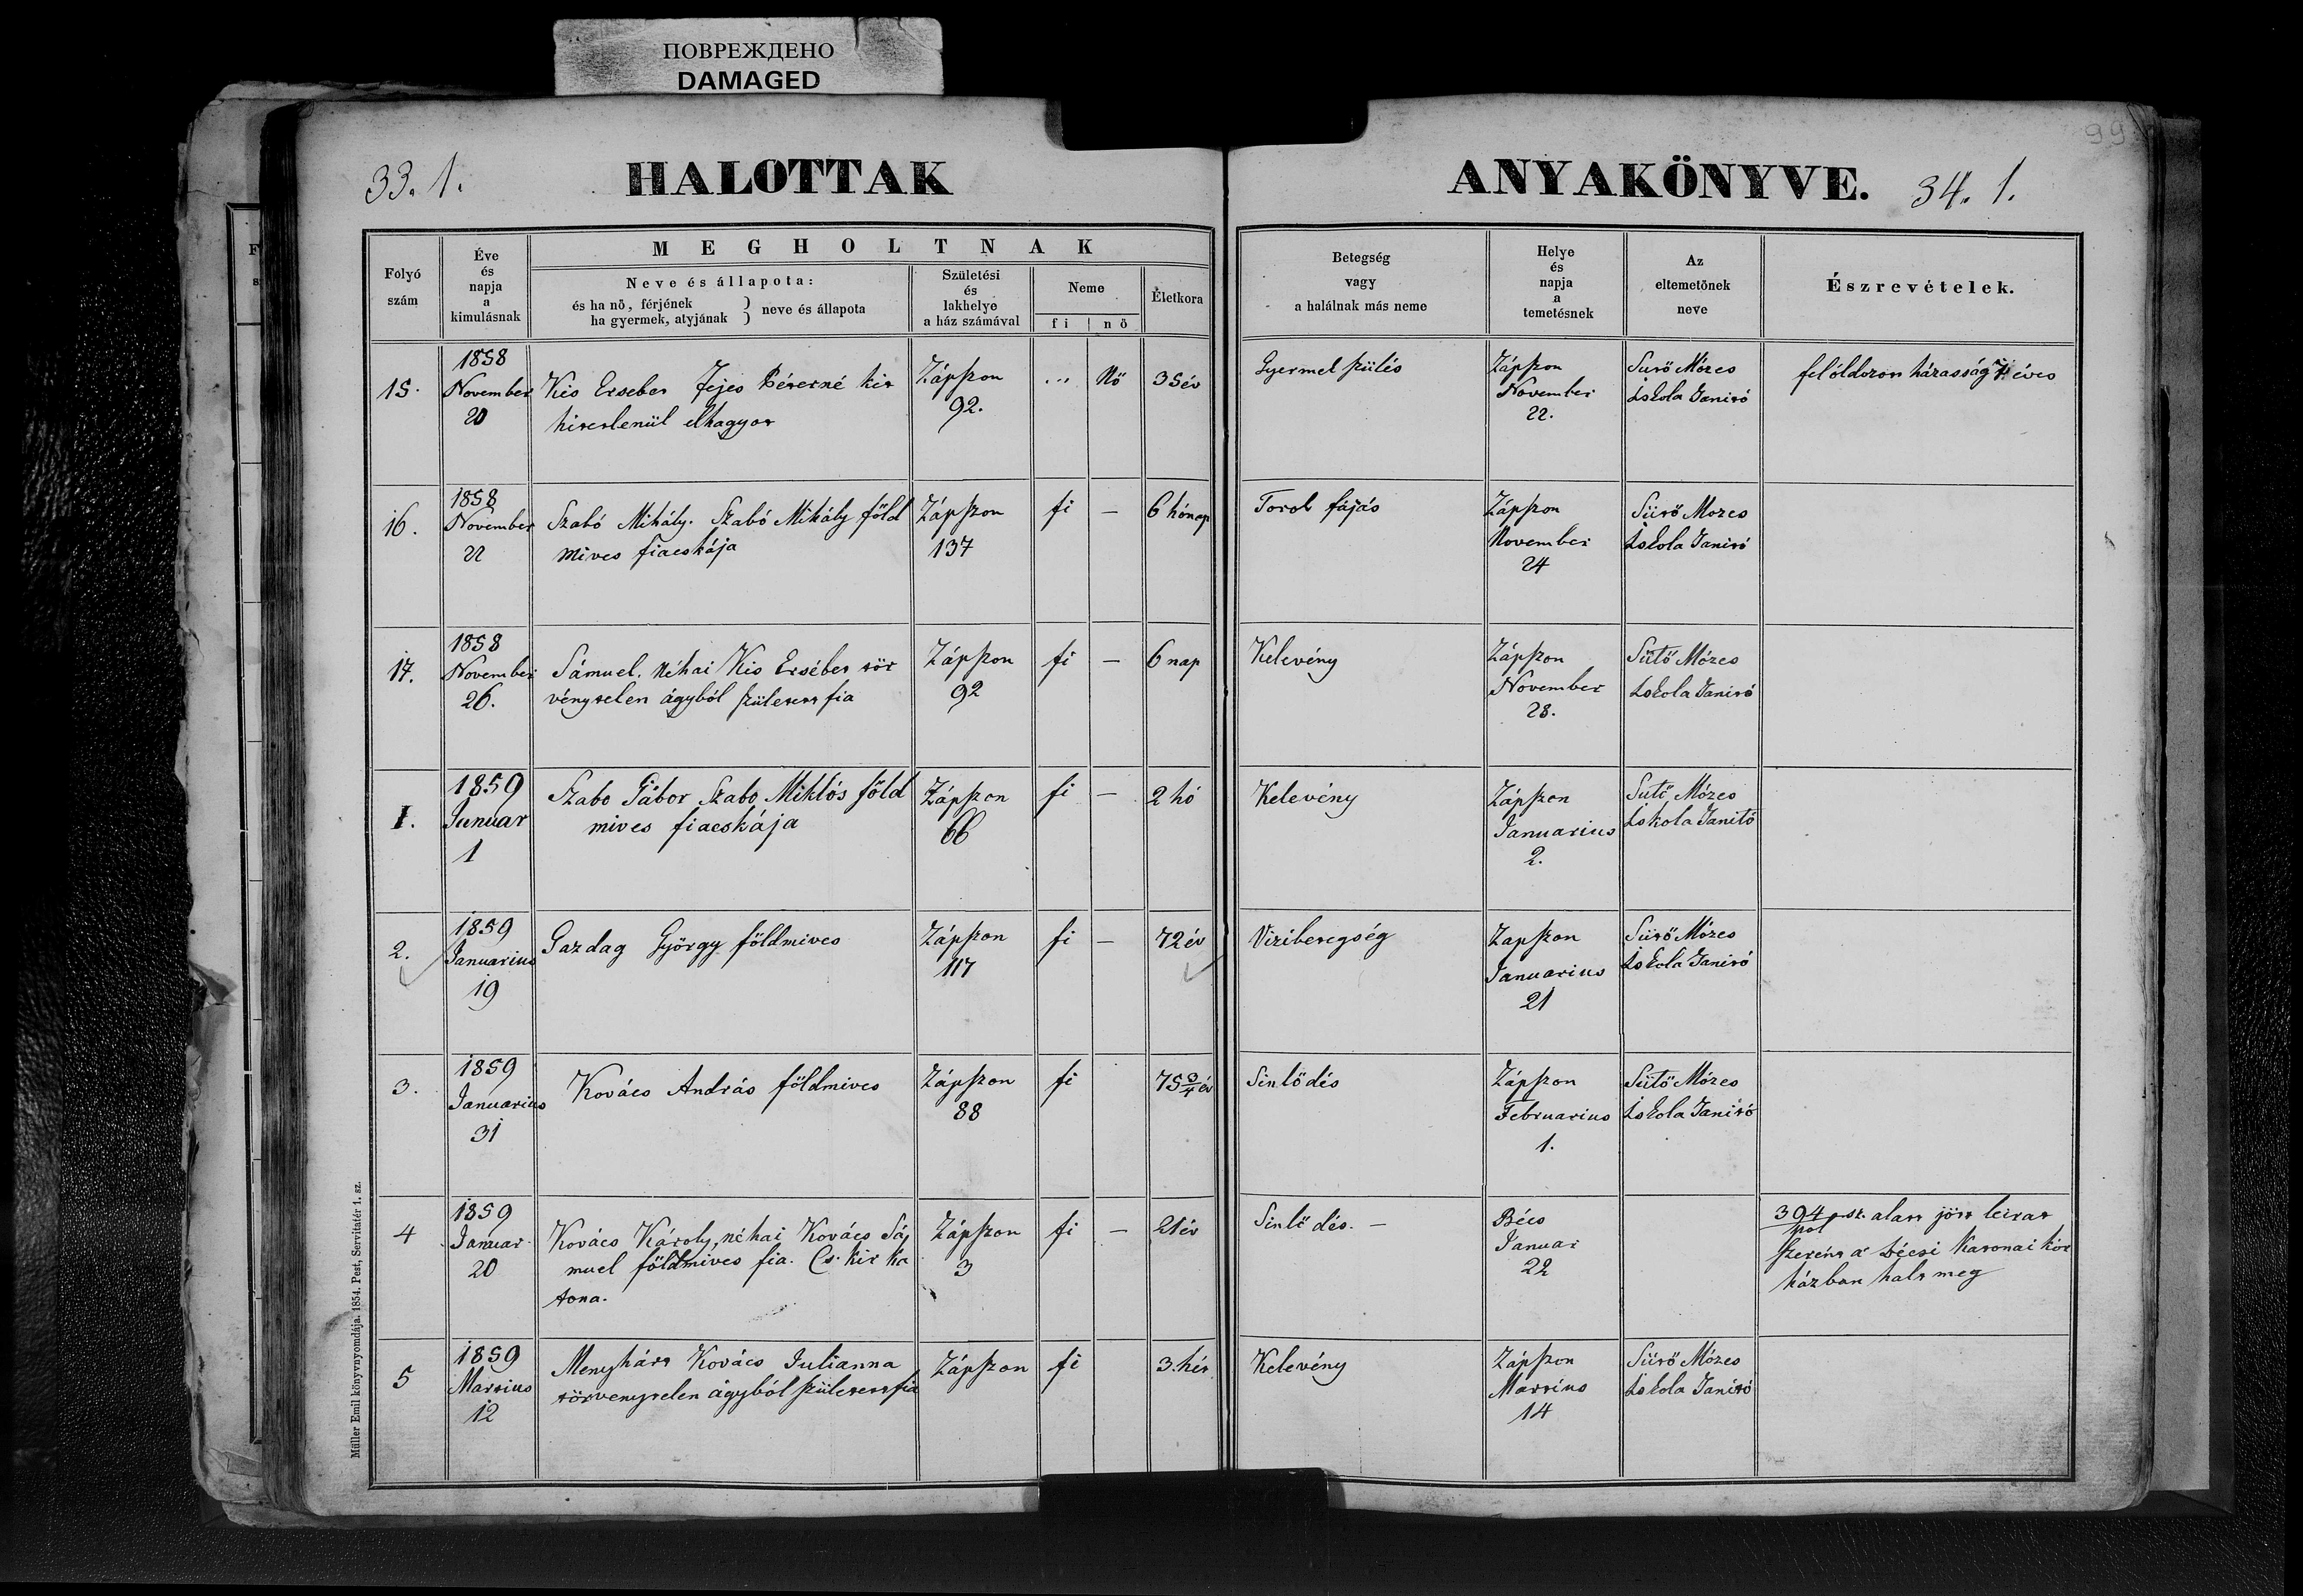 ПОВРЕЖДЕНО
DAMAGED
99
33. 1.
HALOTTAK
ANYAKÖNYVE.
34. 1.
Folyó
szám
Éve
és
napja
a
kimulásnak
MEGHOLTNAK
Neve és állapota:
és ha nő, férjének
ha gyermek, atyjának
neve és állapota
Születési
és
lakhelye
a ház számával
Neme
fi
nő
Életkora
Betegség
vagy
a halálnak más neme
Helye
és
napja
a
temetésnek
Az
eltemetőnek
neve
Észrevételek.
15.
1858
November
20
Kis Ersebet Fejes Péterné kit
hitetlenül elhagyot
Zápszon
92.
...
Nő
35 év
Gyermek szülés
Zápszon
November
22.
Sütő Mózes
Iskola Tanitó
feloldozott házasság éves
16.
1858
November
22
Szabó Mihály. Szabó Mihály föld
mives fiacskája
Zápszon
137
fi
—
6 hónap
Torok fájás
Zápszon
November
24
Sütő Mozes
Iskola Tanitó
17.
1858
November
26.
Sámuel. Néhai Kis Ersébet tör
vénytelen ágyból született fia
Zápszon
92
fi
—
6 nap
Kelevény
Zápszon
November
28.
Sütő Mózes
Iskola Tanitó
1.
1859
Januar
1
Szabo Gábor Szabo Miklós föld
mives fiacskája
Zápszon
66
fi
—
2 hó
Kelevény
Zápszon
Januarius
2.
Sutő Mózes
Iskola Tanitó
2.
1859
Januarius
19
Gazdag György földmives
Zápszon
117
fi
—
72 év
Vizibetegség
Zapszon
Januarius
21
Sütő Mózes
Iskola Tanitó
3.
1859
Januarius
31
Kovács András földmives
Zápszon
88
fi
75 3/4 év
Sinlődés
Zápszon
Februarius
1.
Sütő Mózes
Iskola Tanitó
4
1859
Januar
20
Kovács Károly, néhai Kovács Sá
muel földmives fia. Cs. Kir Ka
tona.
Zápszon
3
fi
—
21 év
Sinlődés. —
Bécs
Januar
22
394 sz. alatt jött leirat
szerént a bécsi Katonai kór
házban halt meg
5
1859
Martius
12
Menyhárt Kovács Julianna
törvenytelen ágyból született fia
Zápszon
fi
3. hét
Kelevény
Zápszon
Martius
14
Sütő Mózes
Iskola Tanitó
Müller Emil könyvnyomdája. 1854. Pest, Servitatér 1. sz.